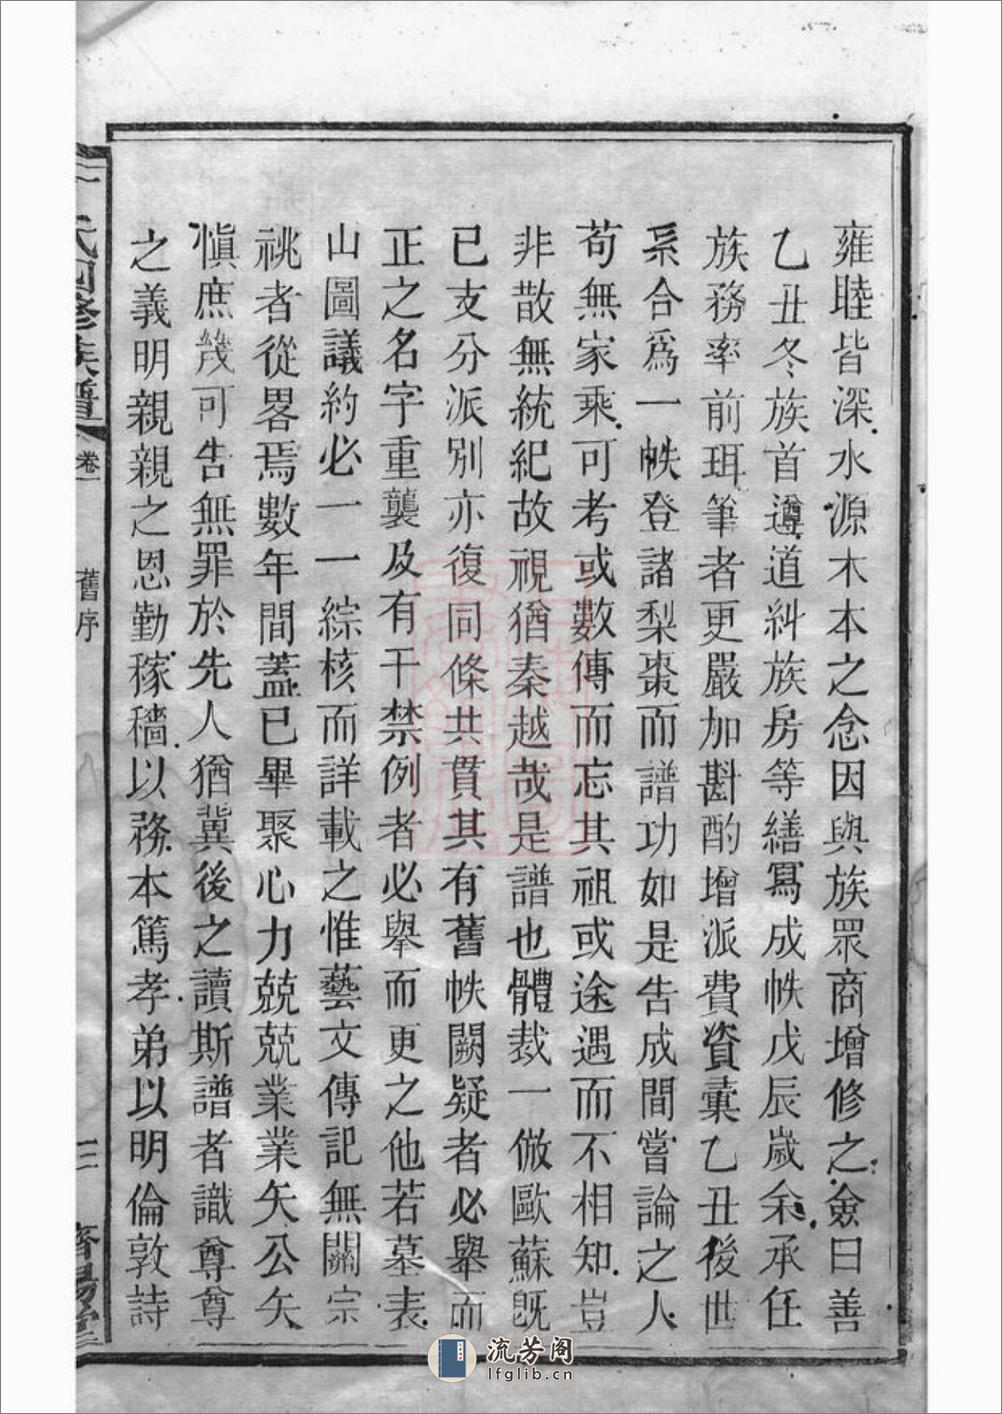 雍睦皆深水源木本之念因與族眾商增修之僉曰善
乙丑冬族首遵道糾族房等繕寫成帙戊辰歲余承任
族務率前珥筆者更嚴加斟酌增派費資彙乙丑後世
系合爲一帙登諸梨棗而譜功如是告成間嘗論之人
苟無家乘可考或數傳而忘其祖或途遇而不相知豈
非散無統紀故視猶秦越哉是譜也體裁一倣歐蘇既
已支分派別亦復同條共貫其有舊帙闕疑者必舉而
正之名字重襲及有干禁例者必舉而更之他若墓表
山圖議約必一一綜核而詳載之惟藝文傳記無關宗
祧者從畧焉數年間蓋已畢聚心力兢兢業業矣公矣
愼庶幾可告無罪於先人猶冀後之讀斯譜者識尊尊
之義明親親之恩勤稼穡以務本篤孝弟以明倫敦詩
氏四修族譜
卷一
舊序
三
濟陽堂
流芳阁
lfglib.cn